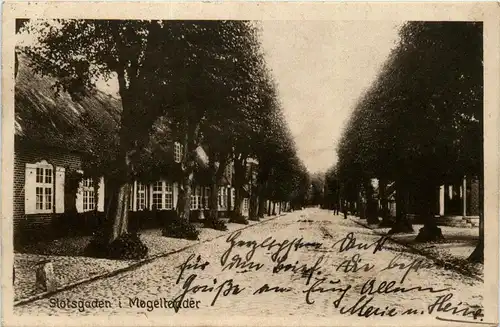 Slotsgaden i Møgeltønder
Herzlichsten Dank
für den Brief. Die besten
Grüße an Euch Allen
Marie u. Heinr.